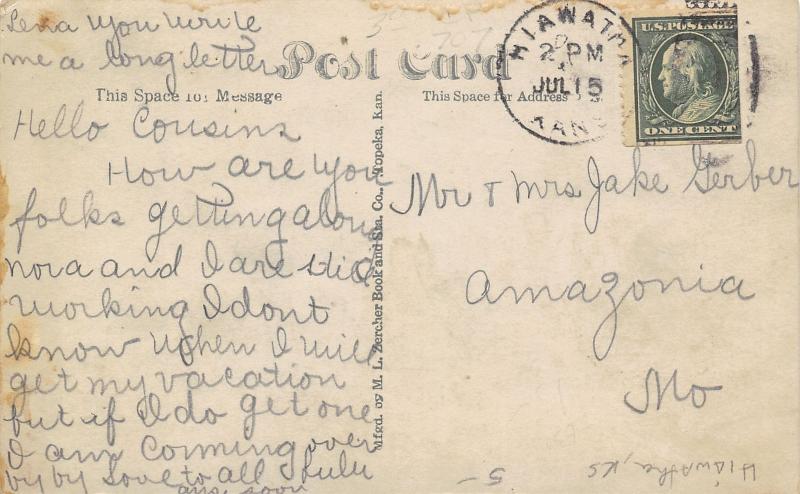 Lena you write
me a long letter
Post Card
This Space for Message
This Space for Address
HIAWATHA
2 PM
JUL 15
KANS
U.S. POSTAGE
ONE CENT
Hello Cousins
How are you
folks getting along
nora and I are still
working I dont
know when I will
get my vacation
but if I do get one
I am Comming over
by by Love to all Lulu
ans soon
Mfgd. by M. L. Zercher Book and Sta. Co., Topeka, Kan.
Mr & Mrs Jake Gerber
Amazonia
Mo
5-
Hiawatha, KS